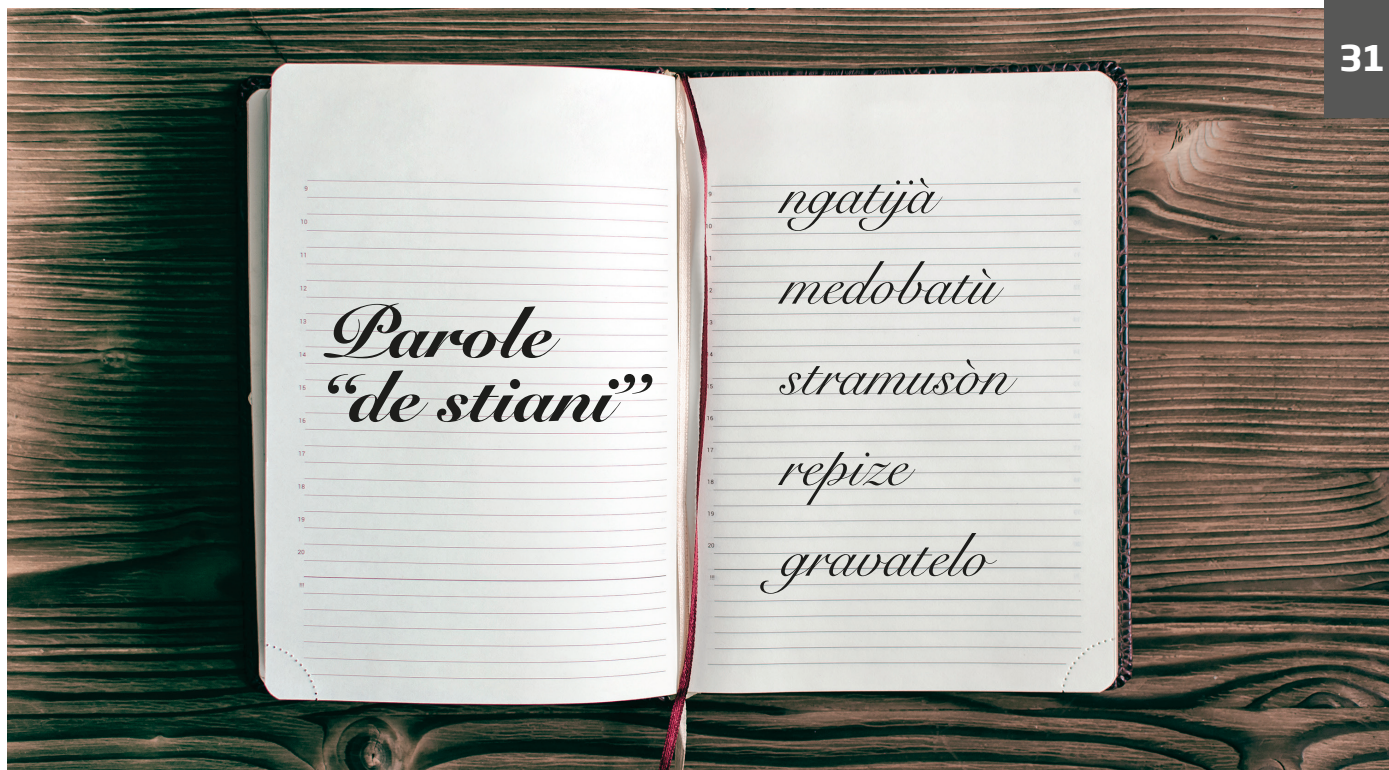 31
Parole
“de stiani”
ngatijà
medobatù
stramusòn
repize
gravatelo